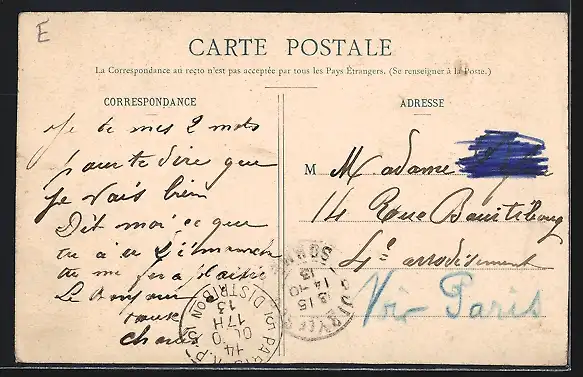 E
CARTE POSTALE
La Correspondance au recto n'est pas acceptée par tous les Pays Étrangers. (Se renseigner à la Poste.)
CORRESPONDANCE
Je te mes 2 mots
pour te dire que
Je vais bien
Dit moi ce que
tu a le Dimanch
tu me fera plaisir
Le Bonjour
ADRESSE
M Madame
14 Rue
4e arrodisement
Via Paris
PARIS
DISTRIBON
17H
13
14-10
13